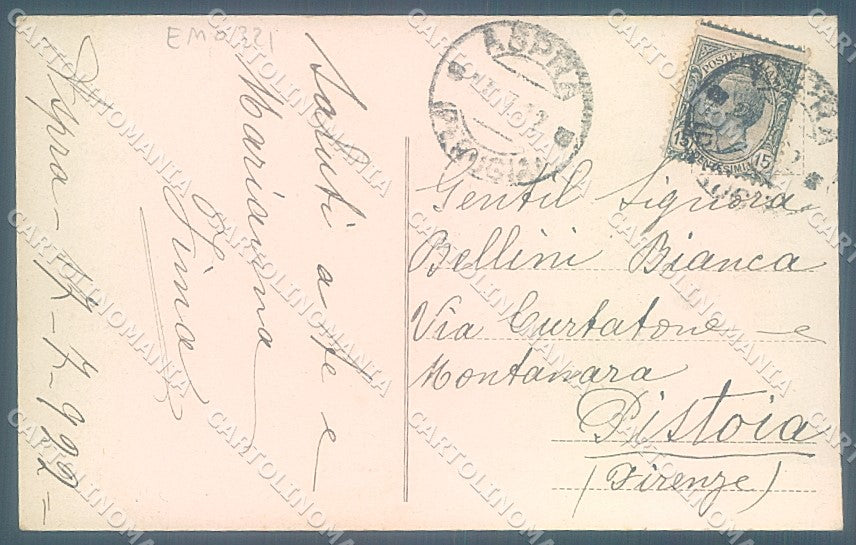 EM 0321
Aspra - 17-7-922 =
Saluti a te e
Marianna
Gentil Signora
Bellini Bianca
Via Curtatone e
Montanara
Pistoia
(Firenze)
ASPRA
POSTE
15
CENTESIMI
15
CARTOLINOMANIA